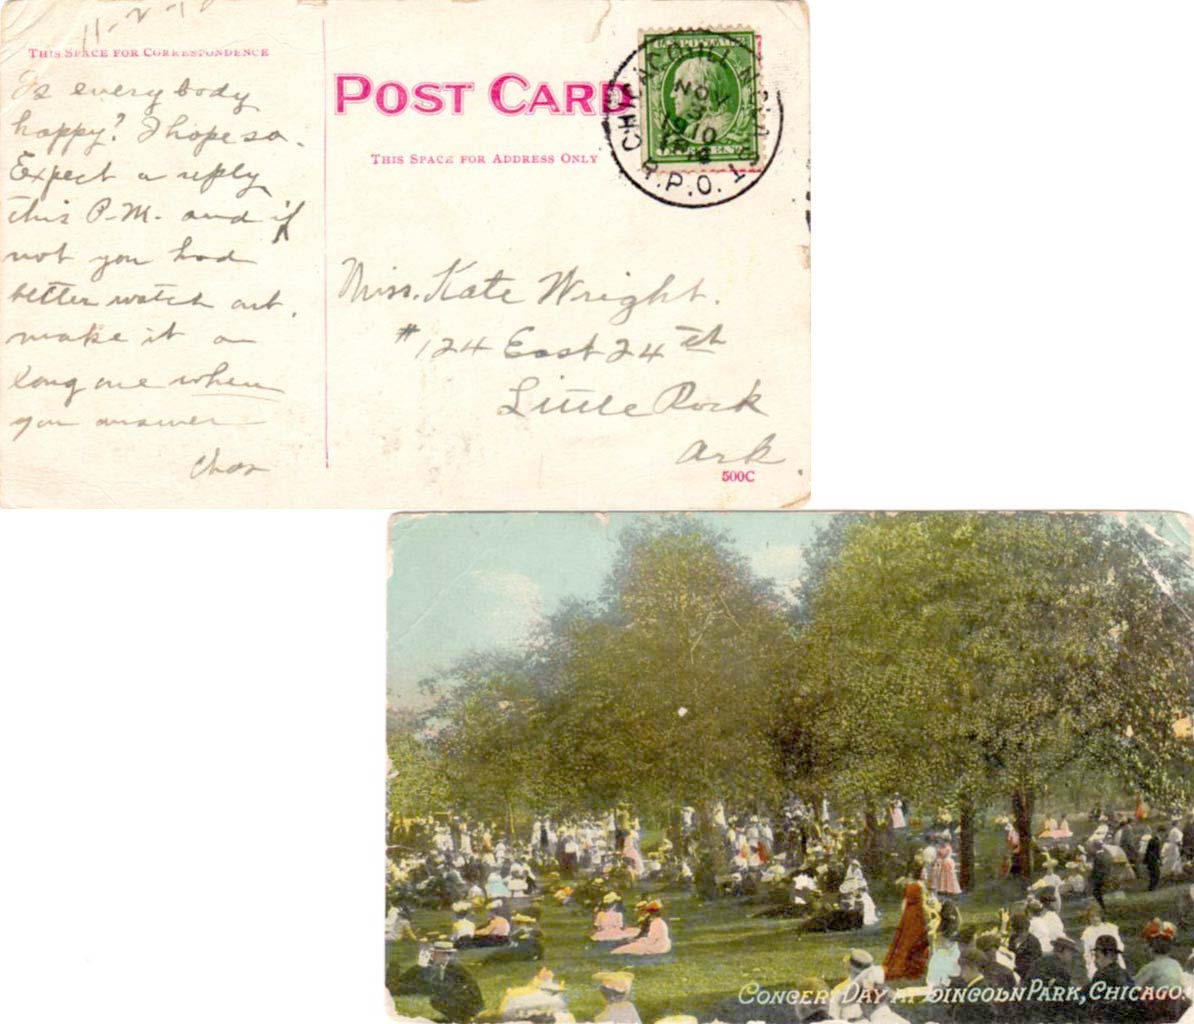 11-2-10
THIS SPACE FOR CORRESPONDENCE
Is everybody
happy? I hope so.
Expect a reply
this P.M. and if
not you had
better watch out.
make it a
long one when
you answer
Chas
POST CARD
THIS SPACE FOR ADDRESS ONLY
U.S. POSTAGE
ONE CENT
NOV
3
1910
R.P.O.
Miss. Kate Wright.
#124 East 24th
Little Rock
Ark.
500C
CONCERT DAY AT LINCOLN PARK, CHICAGO.